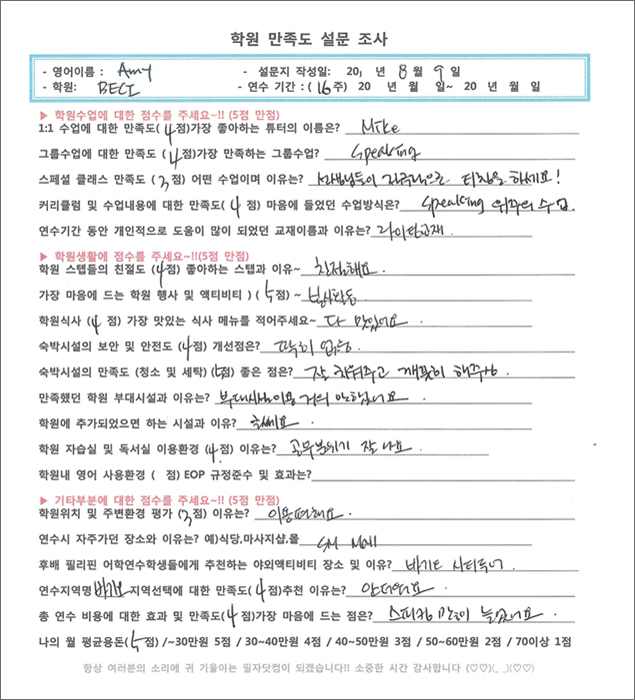 학원 만족도 설문 조사
- 영어이름 : Amy - 설문지 작성일: 20, 년 8 월 9 일
- 학원: BECI - 연수 기간 : ( 16 주) 20 년 월 일~ 20 년 월 일
▶ 학원수업에 대한 점수를 주세요~!! (5점 만점)
1:1 수업에 대한 만족도( 4 점)가장 좋아하는 튜터의 이름은? Mike
그룹수업에 대한 만족도 ( 4 점)가장 만족하는 그룹수업? Speaking
스페셜 클래스 만족도 ( 3 점) 어떤 수업이며 이유는? 티칭을 하세요!
커리큘럼 및 수업내용에 대한 만족도( 4 점) 마음에 들었던 수업방식은? Speaking 위주의 수업.
연수기간 동안 개인적으로 도움이 많이 되었던 교재이름과 이유는? 라이팅교재
▶ 학원생활에 점수를 주세요~!!(5점 만점)
학원 스텝들의 친절도 ( 4 점) 좋아하는 스탭과 이유~ 친절해요.
가장 마음에 드는 학원 행사 및 액티비티 ) ( 5 점) ~ 봉사활동
학원식사 ( 4 점) 가장 맛있는 식사 메뉴를 적어주세요~ 다 맛있어요.
숙박시설의 보안 및 안전도 ( 4 점) 개선점은? 딱히 없음
숙박시설의 만족도 (청소 및 세탁) ( 5 점) 좋은 점은? 잘 치워주고 깨끗히 해주심.
만족했던 학원 부대시설과 이유는? 부대시설이용 거의 안했어요.
학원에 추가되었으면 하는 시설과 이유? 글쎄요.
학원 자습실 및 독서실 이용환경 ( 4 점) 이유는? 공부분위기 잘 나요.
학원내 영어 사용환경 ( 점) EOP 규정준수 및 효과는?
▶ 기타부분에 대한 점수를 주세요~!! (5점 만점)
학원위치 및 주변환경 평가 ( 3 점) 이유는? 이용편해요.
연수시 자주가던 장소와 이유는? 예)식당,마사지샵,몰 SM Mall
후배 필리핀 어학연수학생들에게 추천하는 야외액티비티 장소 및 이유? 바기오 시티투어.
연수지역명 바기오 지역선택에 대한 만족도( 4 점)추천 이유는? 안더워요.
총 연수 비용에 대한 효과 및 만족도( 4 점)가장 마음에 드는 점은? 스피킹 많이 늘었어요.
나의 월 평균용돈( 5 점) /~30만원 5점 / 30~40만원 4점 / 40~50만원 3점 / 50~60만원 2점 / 70이상 1점
항상 여러분의 소리에 귀 기울이는 필자닷컴이 되겠습니다!! 소중한 시간 감사합니다 (♡♡)(_ _)(♡♡)